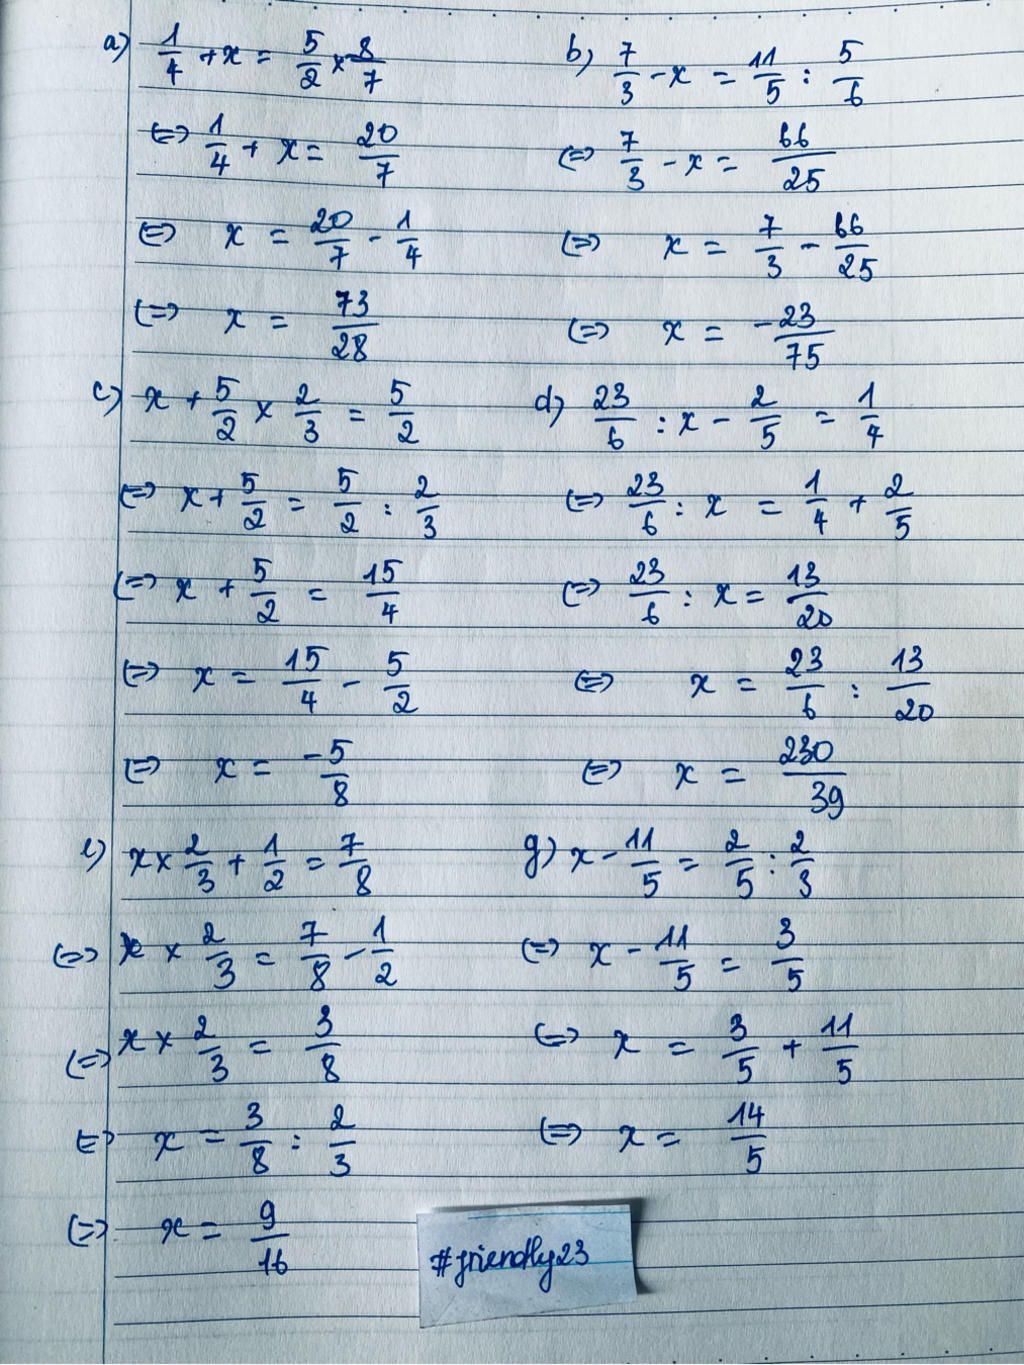 a) 1/4 + x = 5/2 × 8/7
⇔ 1/4 + x = 20/7
⇔ x = 20/7 - 1/4
⇔ x = 73/28
b) 7/3 - x = 11/5 : 5/6
⇔ 7/3 - x = 66/25
⇔ x = 7/3 - 66/25
⇔ x = -23/75
c) x + 5/2 × 2/3 = 5/2
⇔ x + 5/2 = 5/2 : 2/3
⇔ x + 5/2 = 15/4
⇔ x = 15/4 - 5/2
⇔ x = -5/8
d) 23/6 : x - 2/5 = 1/4
⇔ 23/6 : x = 1/4 + 2/5
⇔ 23/6 : x = 13/20
⇔ x = 23/6 : 13/20
⇔ x = 230/39
e) x × 2/3 + 1/2 = 7/8
⇔ x × 2/3 = 7/8 - 1/2
⇔ x × 2/3 = 3/8
⇔ x = 3/8 : 2/3
⇔ x = 9/16
g) x - 11/5 = 2/5 : 2/3
⇔ x - 11/5 = 3/5
⇔ x = 3/5 + 11/5
⇔ x = 14/5
#friendly23